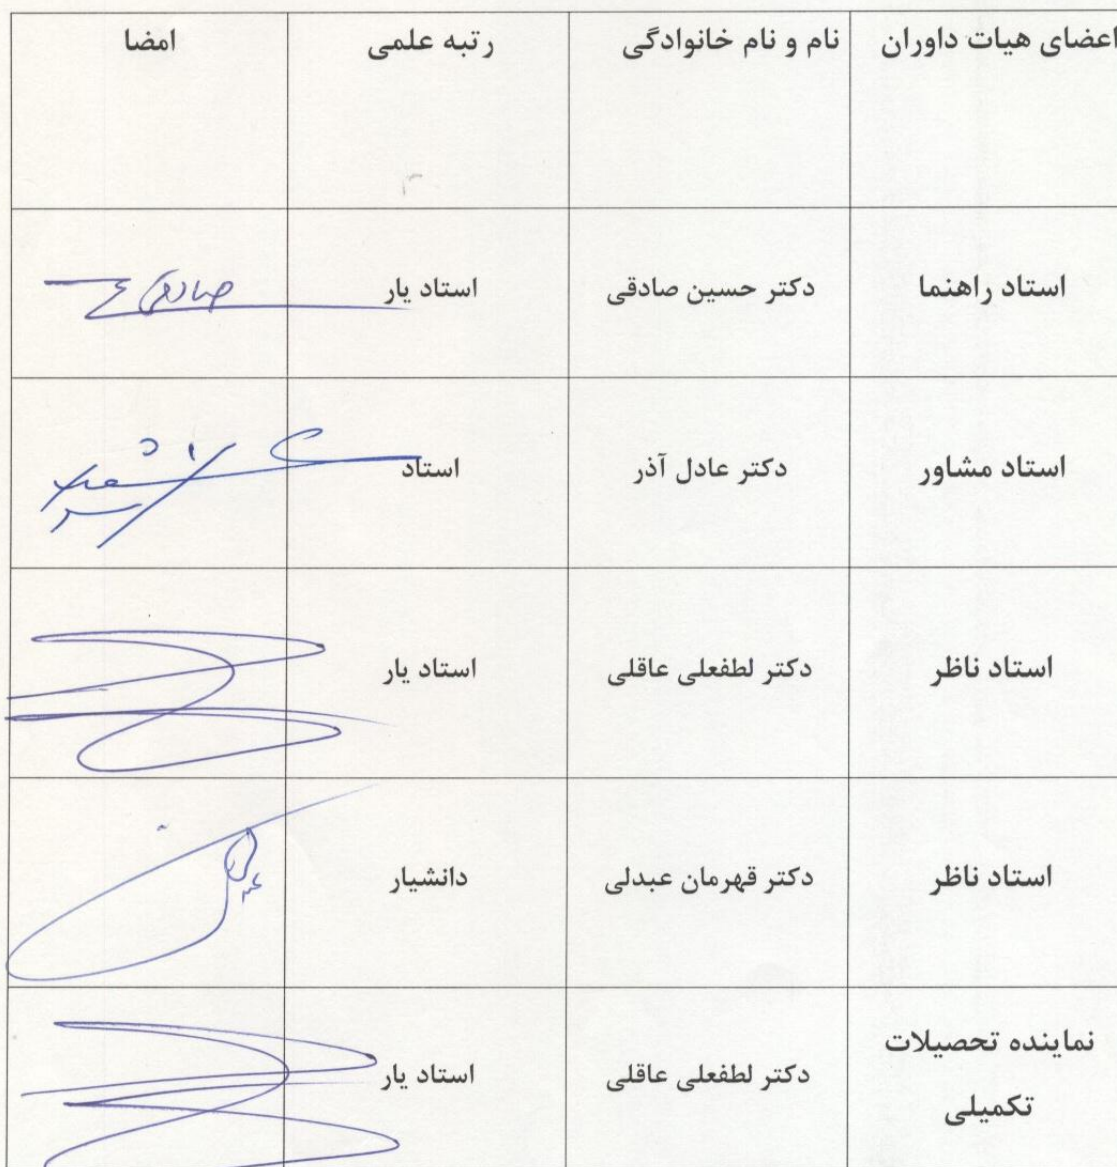 اعضای هیات داوران نام و نام خانوادگی رتبه علمی امضا
استاد راهنما دکتر حسین صادقی استاد یار صادقی
استاد مشاور دکتر عادل آذر استاد
استاد ناظر دکتر لطفعلی عاقلی استاد یار
استاد ناظر دکتر قهرمان عبدلی دانشیار
نماینده تحصیلات
تکمیلی دکتر لطفعلی عاقلی استاد یار